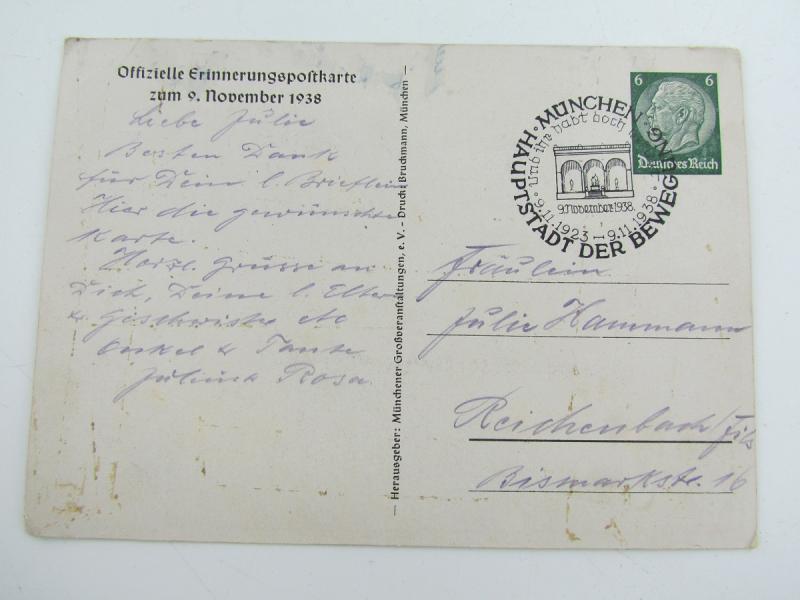 Offizielle Erinnerungspostkarte
zum 9. November 1938
Liebe Julie
Besten Dank
für Dein l. Brieflein
Hier die gewünschte
Karte.
Herzl. Grüsse an
Dich, Deine l. Eltern
& Geschwister etc
Onkel & Tante
Rosa
— Herausgeber: Münchener Großveranstaltungen, e. V. – Druck: Bruckmann, München —
6 6
Deutsches Reich
MÜNCHEN · HAUPTSTADT DER BEWEGUNG ·
Und ihr habt doch
9. November 1938.
9.11.1923 — 9.11.1938
Fräulein
Julie Hammann
Reichenbach/Fils
Bismarkstr. 16